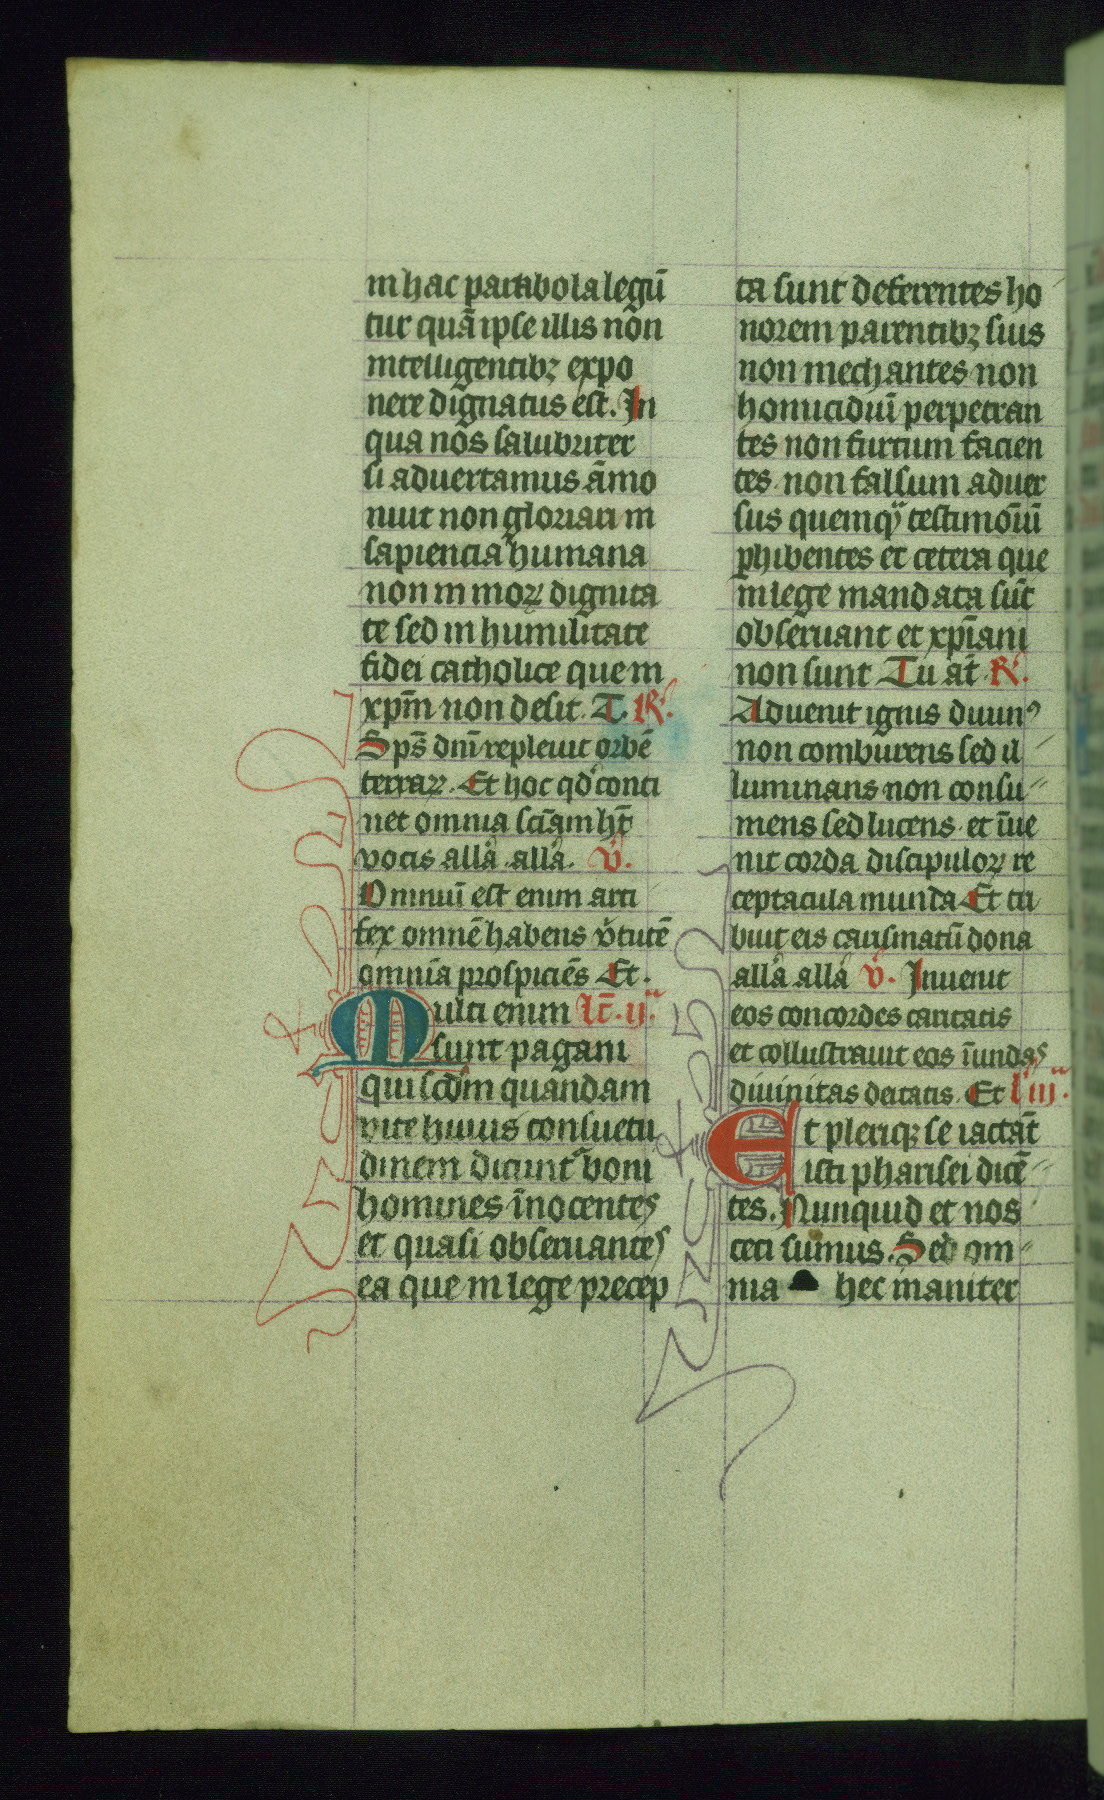 in hac parabola legū
tur quā ipse illis non
intelligentibꝫ expo
nere dignatus est. In
qua nos salubriter
si advertamus āmo
nuit non gloriari in
sapiencia humana
non in moꝝ dignita
te sed in humilitate
fidei catholice que in
xp̄m non desit. T. R͛.
Sp̄s dn̄i repleuit orbē
terraꝝ. Et hoc qd̛ conti
net omnia sciām hꝫ
vocis all̄a all̄a. v̄.
Omniū est enim arti
fex omnē habens v̛tutē
omnia prospiciēs Et.
Multi enim Lc̄. ij.ᵃ
sunt pagani
qui scd̄m quandam
vite huius consuetu
dinem dicunt̛ boni
homines īnocentes
et quasi obseruantes
ea que in lege precep
ta sunt deferentes ho
norem parentibꝫ suis
non mechantes non
homicidiū perpetran
tes non furtum facien
tes. non falsum aduer
sus quemqᷓ testimōiū
ꝑhibentes et cetera que
in lege mandata sūt
obseruant et xp̄iani
non sunt Tu āt. R͛.
Aduenit ignis diuinꝰ
non comburens sed il
luminans non consu
mens sed lucens. et īue
nit corda discipuloꝝ re
ceptacula munda Et tri
buit eis carismatū dona
all̄a all̄a v̄. Inuenit
eos concordes caritatis
et collustrauit eos īundās
diuinitas deitatis. Et l̄ iij.ᵃ
Et pleriqꝫ se iactāt
isti pharisei dicē
tes. Nunquid et nos
ceci sumus. Sed om
nia hec inaniter